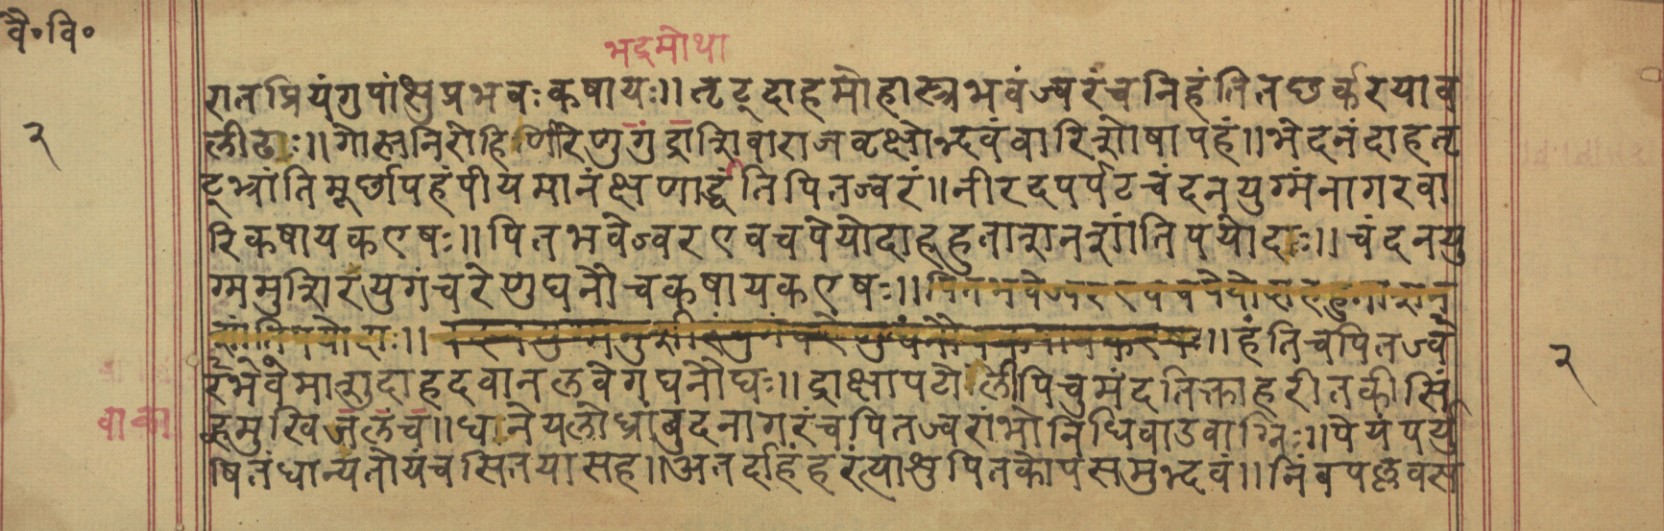 वै॰वि॰
भद्रमोथा
रातप्रियंगुपांक्षुप्रभवःकषायः॥तृट्दाहमोहास्त्रभवंज्वरंचनिहंतितछर्करयाव
२
लीढाः॥गोस्तनिरोहिणिरेणुगुंद्राशिवाराजवृक्षोभ्दवंवारिशोषापहं॥भेदनंदाहतृ
ट्भ्रांतिमूर्छापहंपीयमानंक्षणाद्धंतिपितज्वरं॥नीरदपर्पटचंदनयुग्मंनागरवा
रिकषायकएषः॥पितभवेज्वरएवचपेयोदाहहुताशनशांतिपयोदाः॥चंदनयु
ग्ममुशिरंयुगंचरेणुघनौचकषायकएषः॥पितभवेज्वरएवचपेयोदाहहुताशन
शांतिपयोदाः॥ ॥हंतिचपितज्व
रंभेवेमाशुदाहदवानलवेगघनौघः॥द्राक्षापटोलीपिचुमंदतिक्ताहरीतकीसिं
२
वाका
हमुखिजलंच॥धानेयलोध्रांबुदनागरंचपितज्वरांभोनिधिवाडवाग्निः॥पेयंपर्यु
षितंधान्यतोयंचसितयासह॥अतर्दाहंहरंत्याशुपितकोपसमुभ्दवं॥निंबपल्लवस